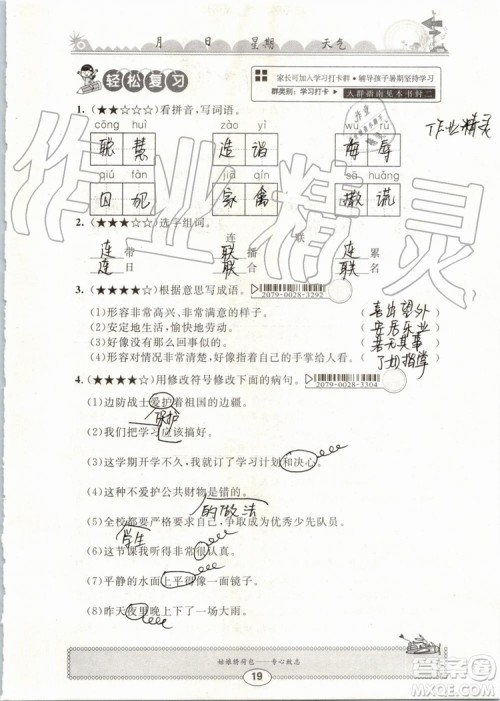 月 日 星期 天气
轻松复习
家长可加入学习打卡群·辅导孩子暑期坚持学习
群类别:学习打卡 人群指南见本书封二
1.(★★☆☆☆)看拼音,写词语。
cōng huì zào yì wǔ rǔ
聪慧 造诣 侮辱
作业精灵
qiú fàn jiā qín sā huǎng
囚犯 家禽 撒谎
2.(★★★☆☆)选字组词。
连 联
连带 联播 连累
连日 联合 联名
3.(★★★☆☆)根据意思写成语。
2079-0028-3292
(1)形容非常高兴、非常满意的样子。 (喜出望外)
(2)安定地生活,愉快地劳动。 (安居乐业)
(3)好像没有那回事。 (若无其事)
(4)形容对情况非常清楚,好像指着自己的手掌给人看。 (了如指掌)
4.(★★★★☆)用修改符号修改下面的病句。
2079-0028-3304
(1)边防战士爱护着祖国的边疆。
保护
(2)我们把学习应该搞好。
(3)这学期开学不久,我就订了学习计划和决心。
(4)这种不爱护公共财物是错的。
的做法
(5)全校都要严格要求自己,争取成为优秀少先队员。
学生
(6)这节课我听得非常很认真。
(7)平静的水面上平得像一面镜子。
(8)昨天夜里晚上下了一场大雨。
姑娘绣荷包——专心致志
19